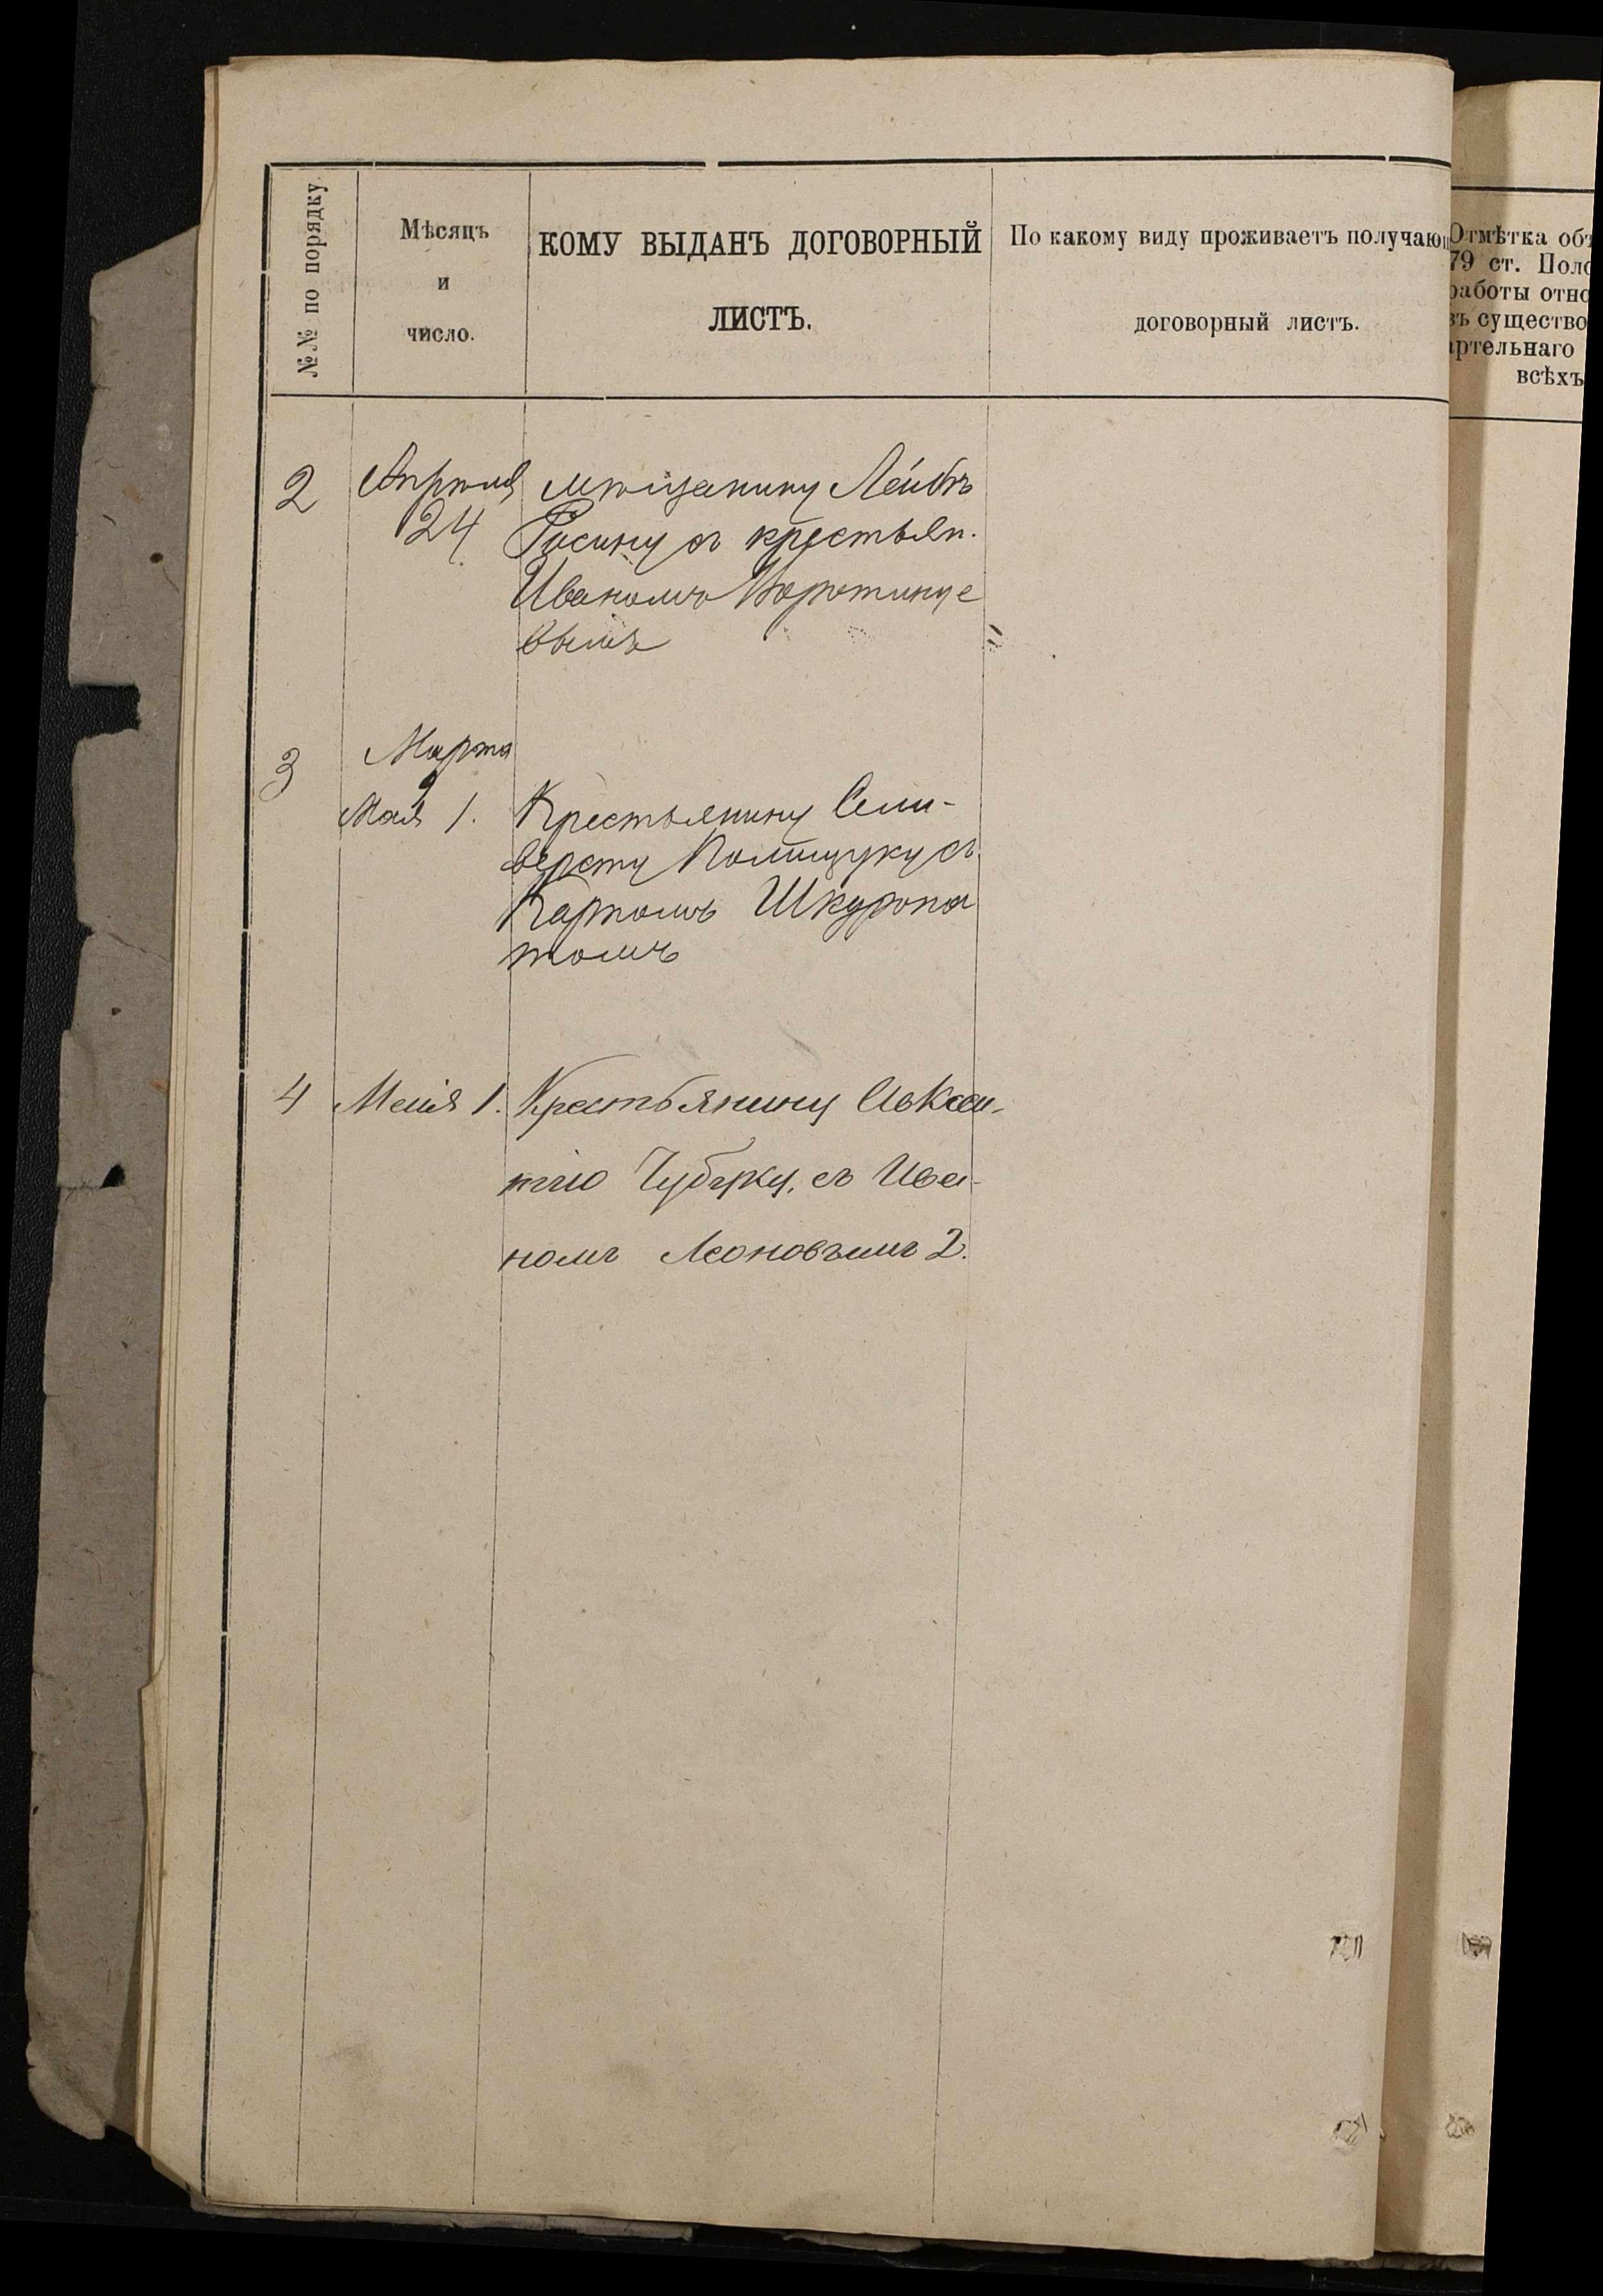 №№ по порядку.
Мѣсяцъ
и
число.
КОМУ ВЫДАНЪ ДОГОВОРНЫЙ
ЛИСТЪ.
По какому виду проживаетъ получаю
договорный листъ.
Отмѣтка объ
79 ст. Поло
работы отно
въ существо
артельнаго
всѣхъ
2
Апрѣля
24
мѣщанину Лейбѣ
Росину съ крестьян.
Иваномъ Воротинце
вымъ
3
Марта
Мая 1.
Крестьянину Сели-
верстu Полищуку съ
Карпомъ Шкуропа
томъ
4
Маія 1.
Крестьянину Авксен-
тію Чубуку, съ Ива-
номъ Леоновымъ 2.